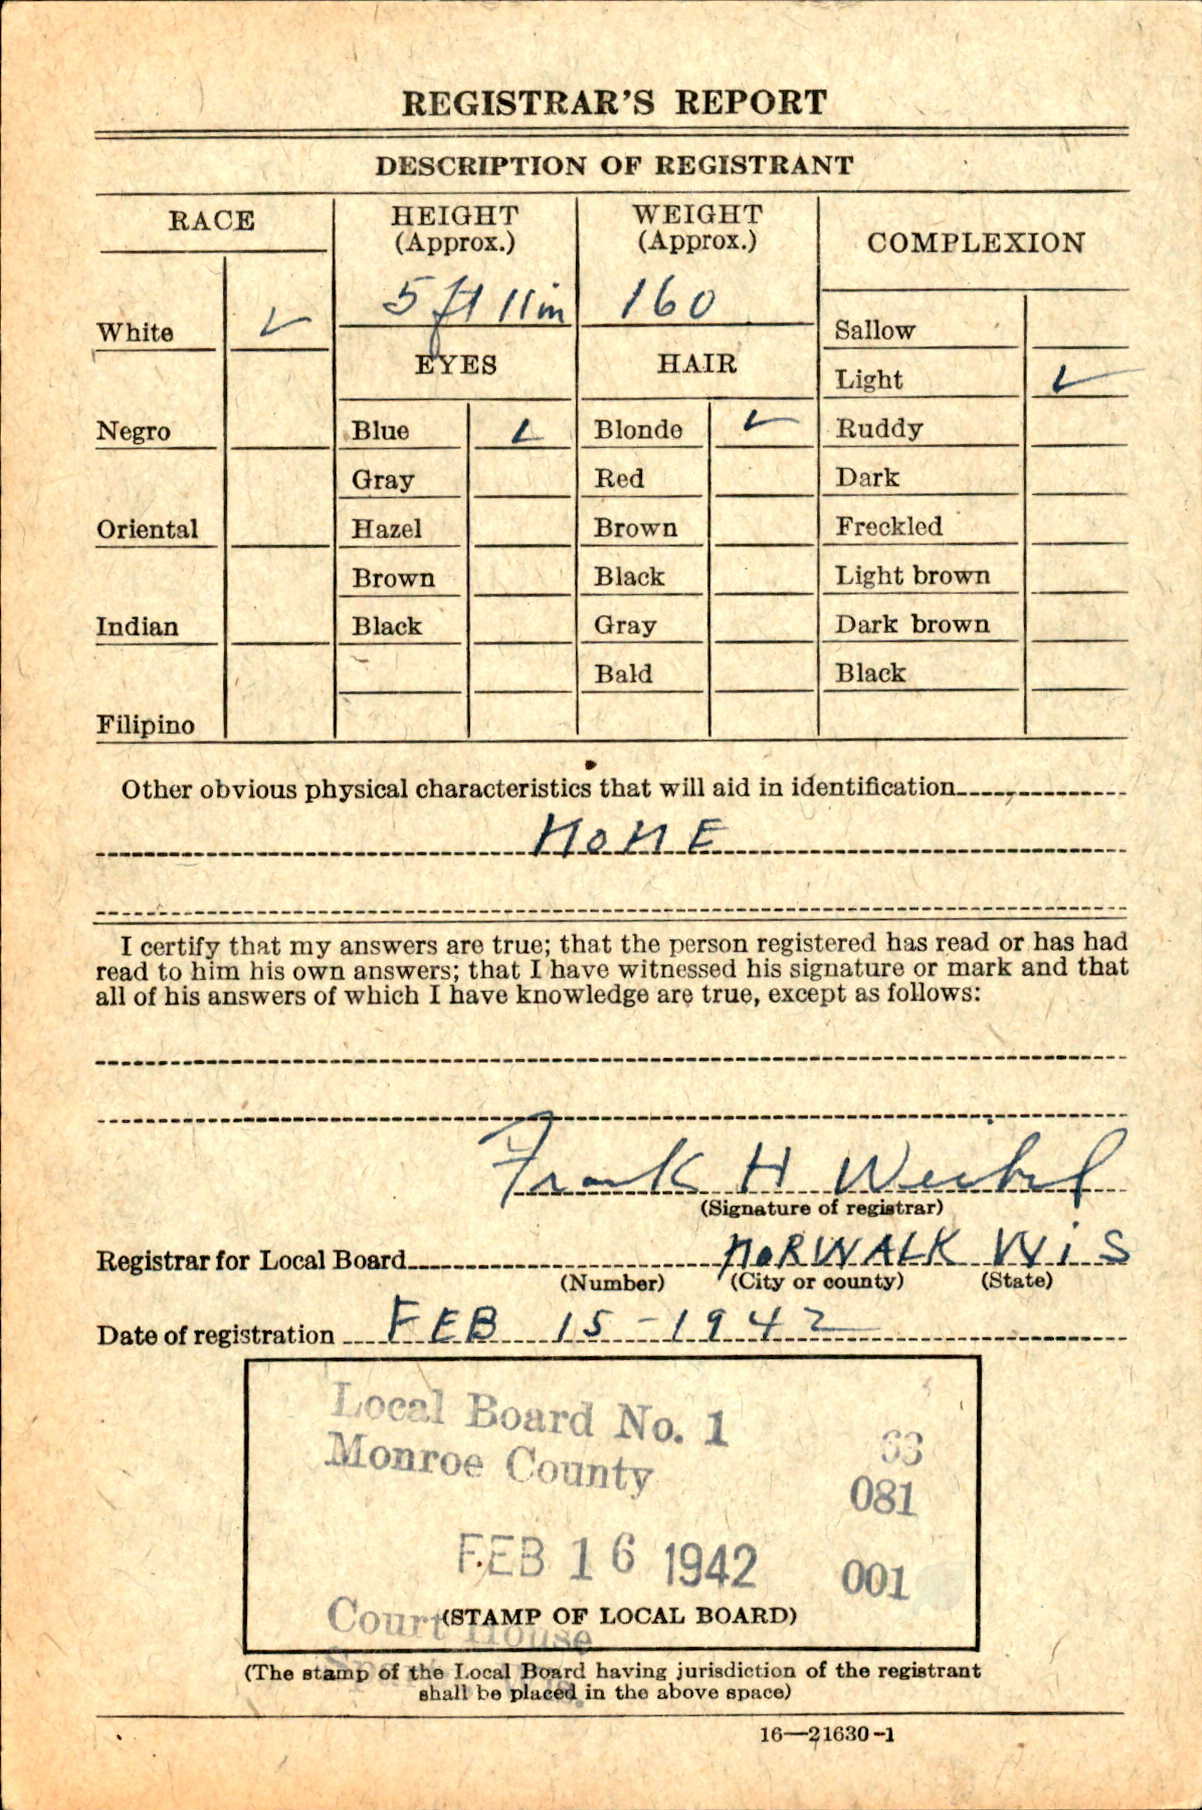 REGISTRAR'S REPORT
DESCRIPTION OF REGISTRANT
RACE
HEIGHT
(Approx.)
WEIGHT
(Approx.)
COMPLEXION
5 ft 11 in
160
White ✓
EYES
HAIR
Sallow
Light ✓
Negro
Blue ✓
Blonde ✓
Ruddy
Gray
Red
Dark
Oriental
Hazel
Brown
Freckled
Brown
Black
Light brown
Indian
Black
Gray
Dark brown
Bald
Black
Filipino
Other obvious physical characteristics that will aid in identification
NONE
I certify that my answers are true; that the person registered has read or has had
read to him his own answers; that I have witnessed his signature or mark and that
all of his answers of which I have knowledge are true, except as follows:
Frank H Weibel
(Signature of registrar)
Registrar for Local Board NORWALK WIS
(Number) (City or county) (State)
Date of registration FEB 15-1942
Local Board No. 1 63
Monroe County 081
FEB 16 1942 001
Court House
(STAMP OF LOCAL BOARD)
(The stamp of the Local Board having jurisdiction of the registrant
shall be placed in the above space)
16—21630-1